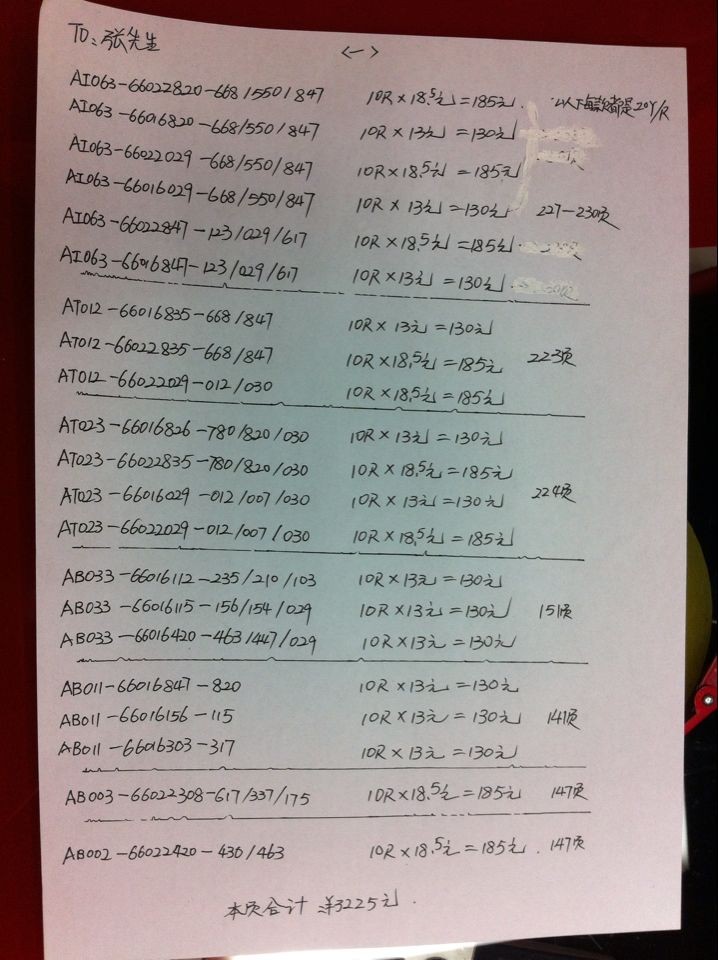 TO: 张先生
<一>
AI063-66022820-668/550/847 10R×18.5元=185元. 以下每款都是20Y/R
AI063-66016820-668/550/847 10R×13元=130元
AI063-66022029-668/550/847 10R×18.5元=185元
AI063-66016029-668/550/847 10R×13元=130元 227-230页
AI063-66022847-123/029/617 10R×18.5元=185元
AI063-66016847-123/029/617 10R×13元=130元
AT012-66016835-668/847 10R×13元=130元
AT012-66022835-668/847 10R×18.5元=185元 223页
AT012-66022029-012/030 10R×18.5元=185元
AT023-66016826-780/820/030 10R×13元=130元
AT023-66022835-780/820/030 10R×18.5元=185元
AT023-66016029-012/007/030 10R×13元=130元 224页
AT023-66022029-012/007/030 10R×18.5元=185元
AB033-66016112-235/210/103 10R×13元=130元
AB033-66016115-156/154/029 10R×13元=130元 151页
AB033-66016420-463/447/029 10R×13元=130元
AB011-66016847-820 10R×13元=130元
AB011-66016156-115 10R×13元=130元 141页
AB011-66016303-317 10R×13元=130元
AB003-66022308-617/337/175 10R×18.5元=185元 147页
AB002-66022420-430/463 10R×18.5元=185元. 147页
本页合计 ¥3225元.